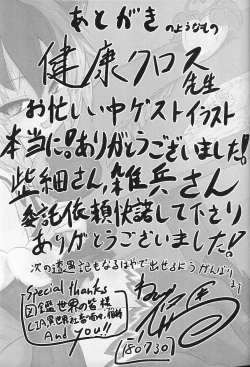 あとがき のようなもの
健康クロス 先生
お忙しい中ゲストイラスト
本当に!ありがとうございました!
柴細さん,雑兵さん
委託依頼快諾して下さり
ありがとうございました!
次の遭遇記もなるはやで出せるようがんばります
Special thanks
図鑑世界の皆様
And You!!
180730